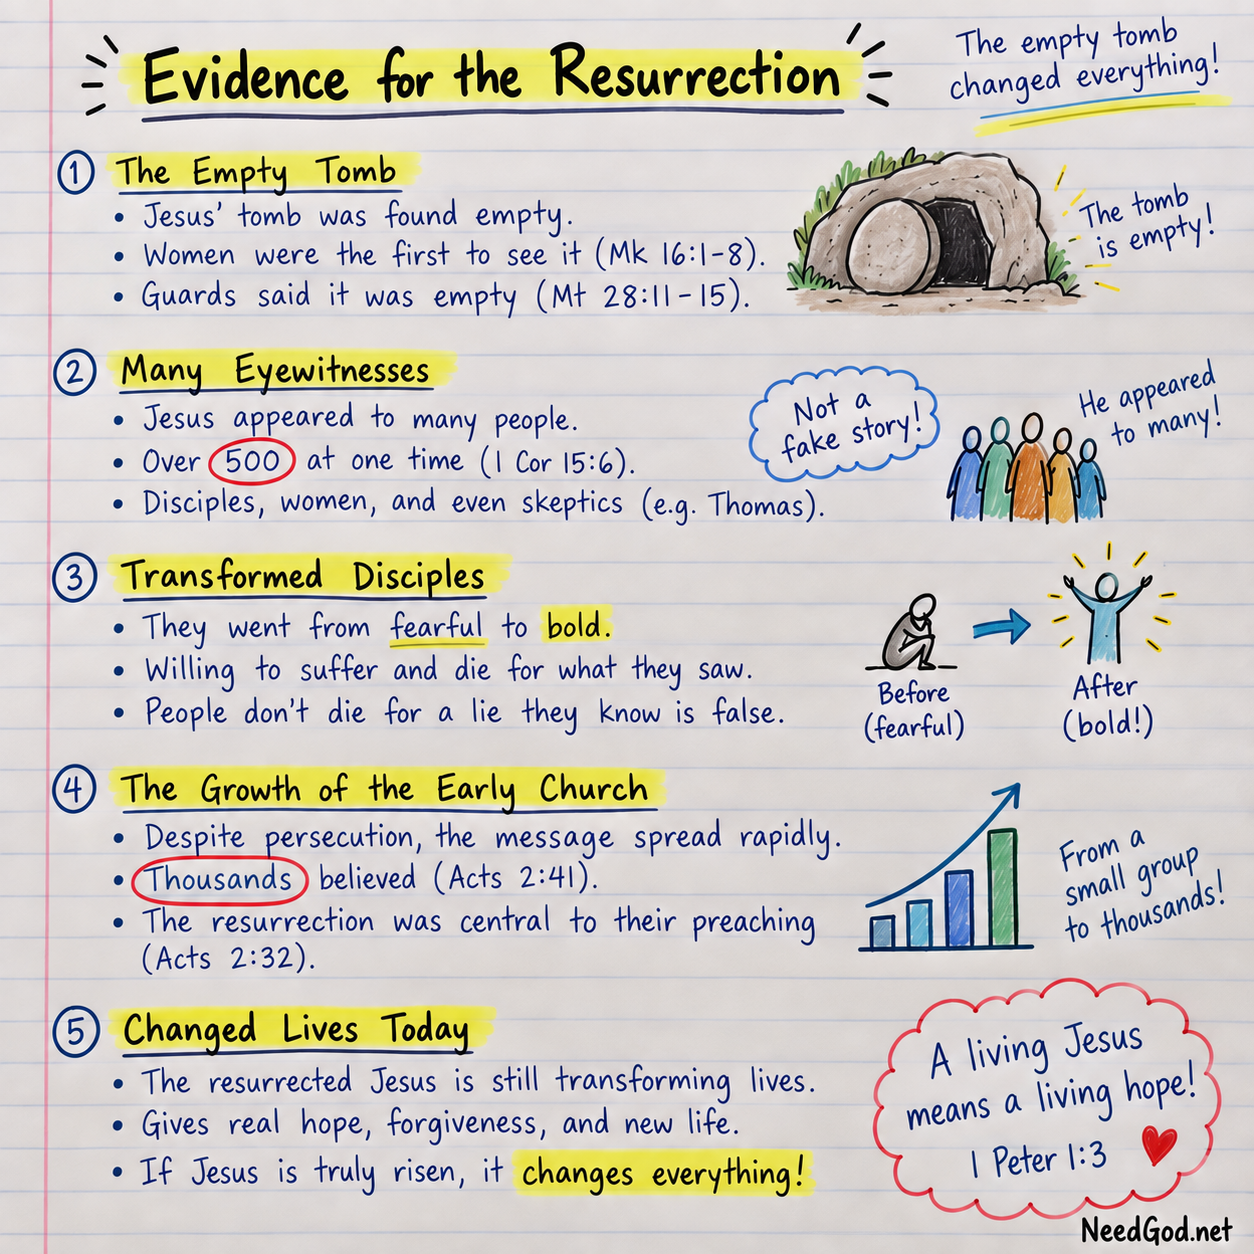 Evidence for the Resurrection
The empty tomb
changed everything!
1 The Empty Tomb
• Jesus' tomb was found empty.
• Women were the first to see it (Mk 16:1-8).
• Guards said it was empty (Mt 28:11-15).
The tomb
is empty!
2 Many Eyewitnesses
• Jesus appeared to many people.
• Over 500 at one time (1 Cor 15:6).
• Disciples, women, and even skeptics (e.g. Thomas).
Not a
fake story!
He appeared
to many!
3 Transformed Disciples
• They went from fearful to bold.
• Willing to suffer and die for what they saw.
• People don't die for a lie they know is false.
Before
(fearful)
After
(bold!)
4 The Growth of the Early Church
• Despite persecution, the message spread rapidly.
• Thousands believed (Acts 2:41).
• The resurrection was central to their preaching
(Acts 2:32).
From a
small group
to thousands!
5 Changed Lives Today
• The resurrected Jesus is still transforming lives.
• Gives real hope, forgiveness, and new life.
• If Jesus is truly risen, it changes everything!
A living Jesus
means a living hope!
1 Peter 1:3
NeedGod.net